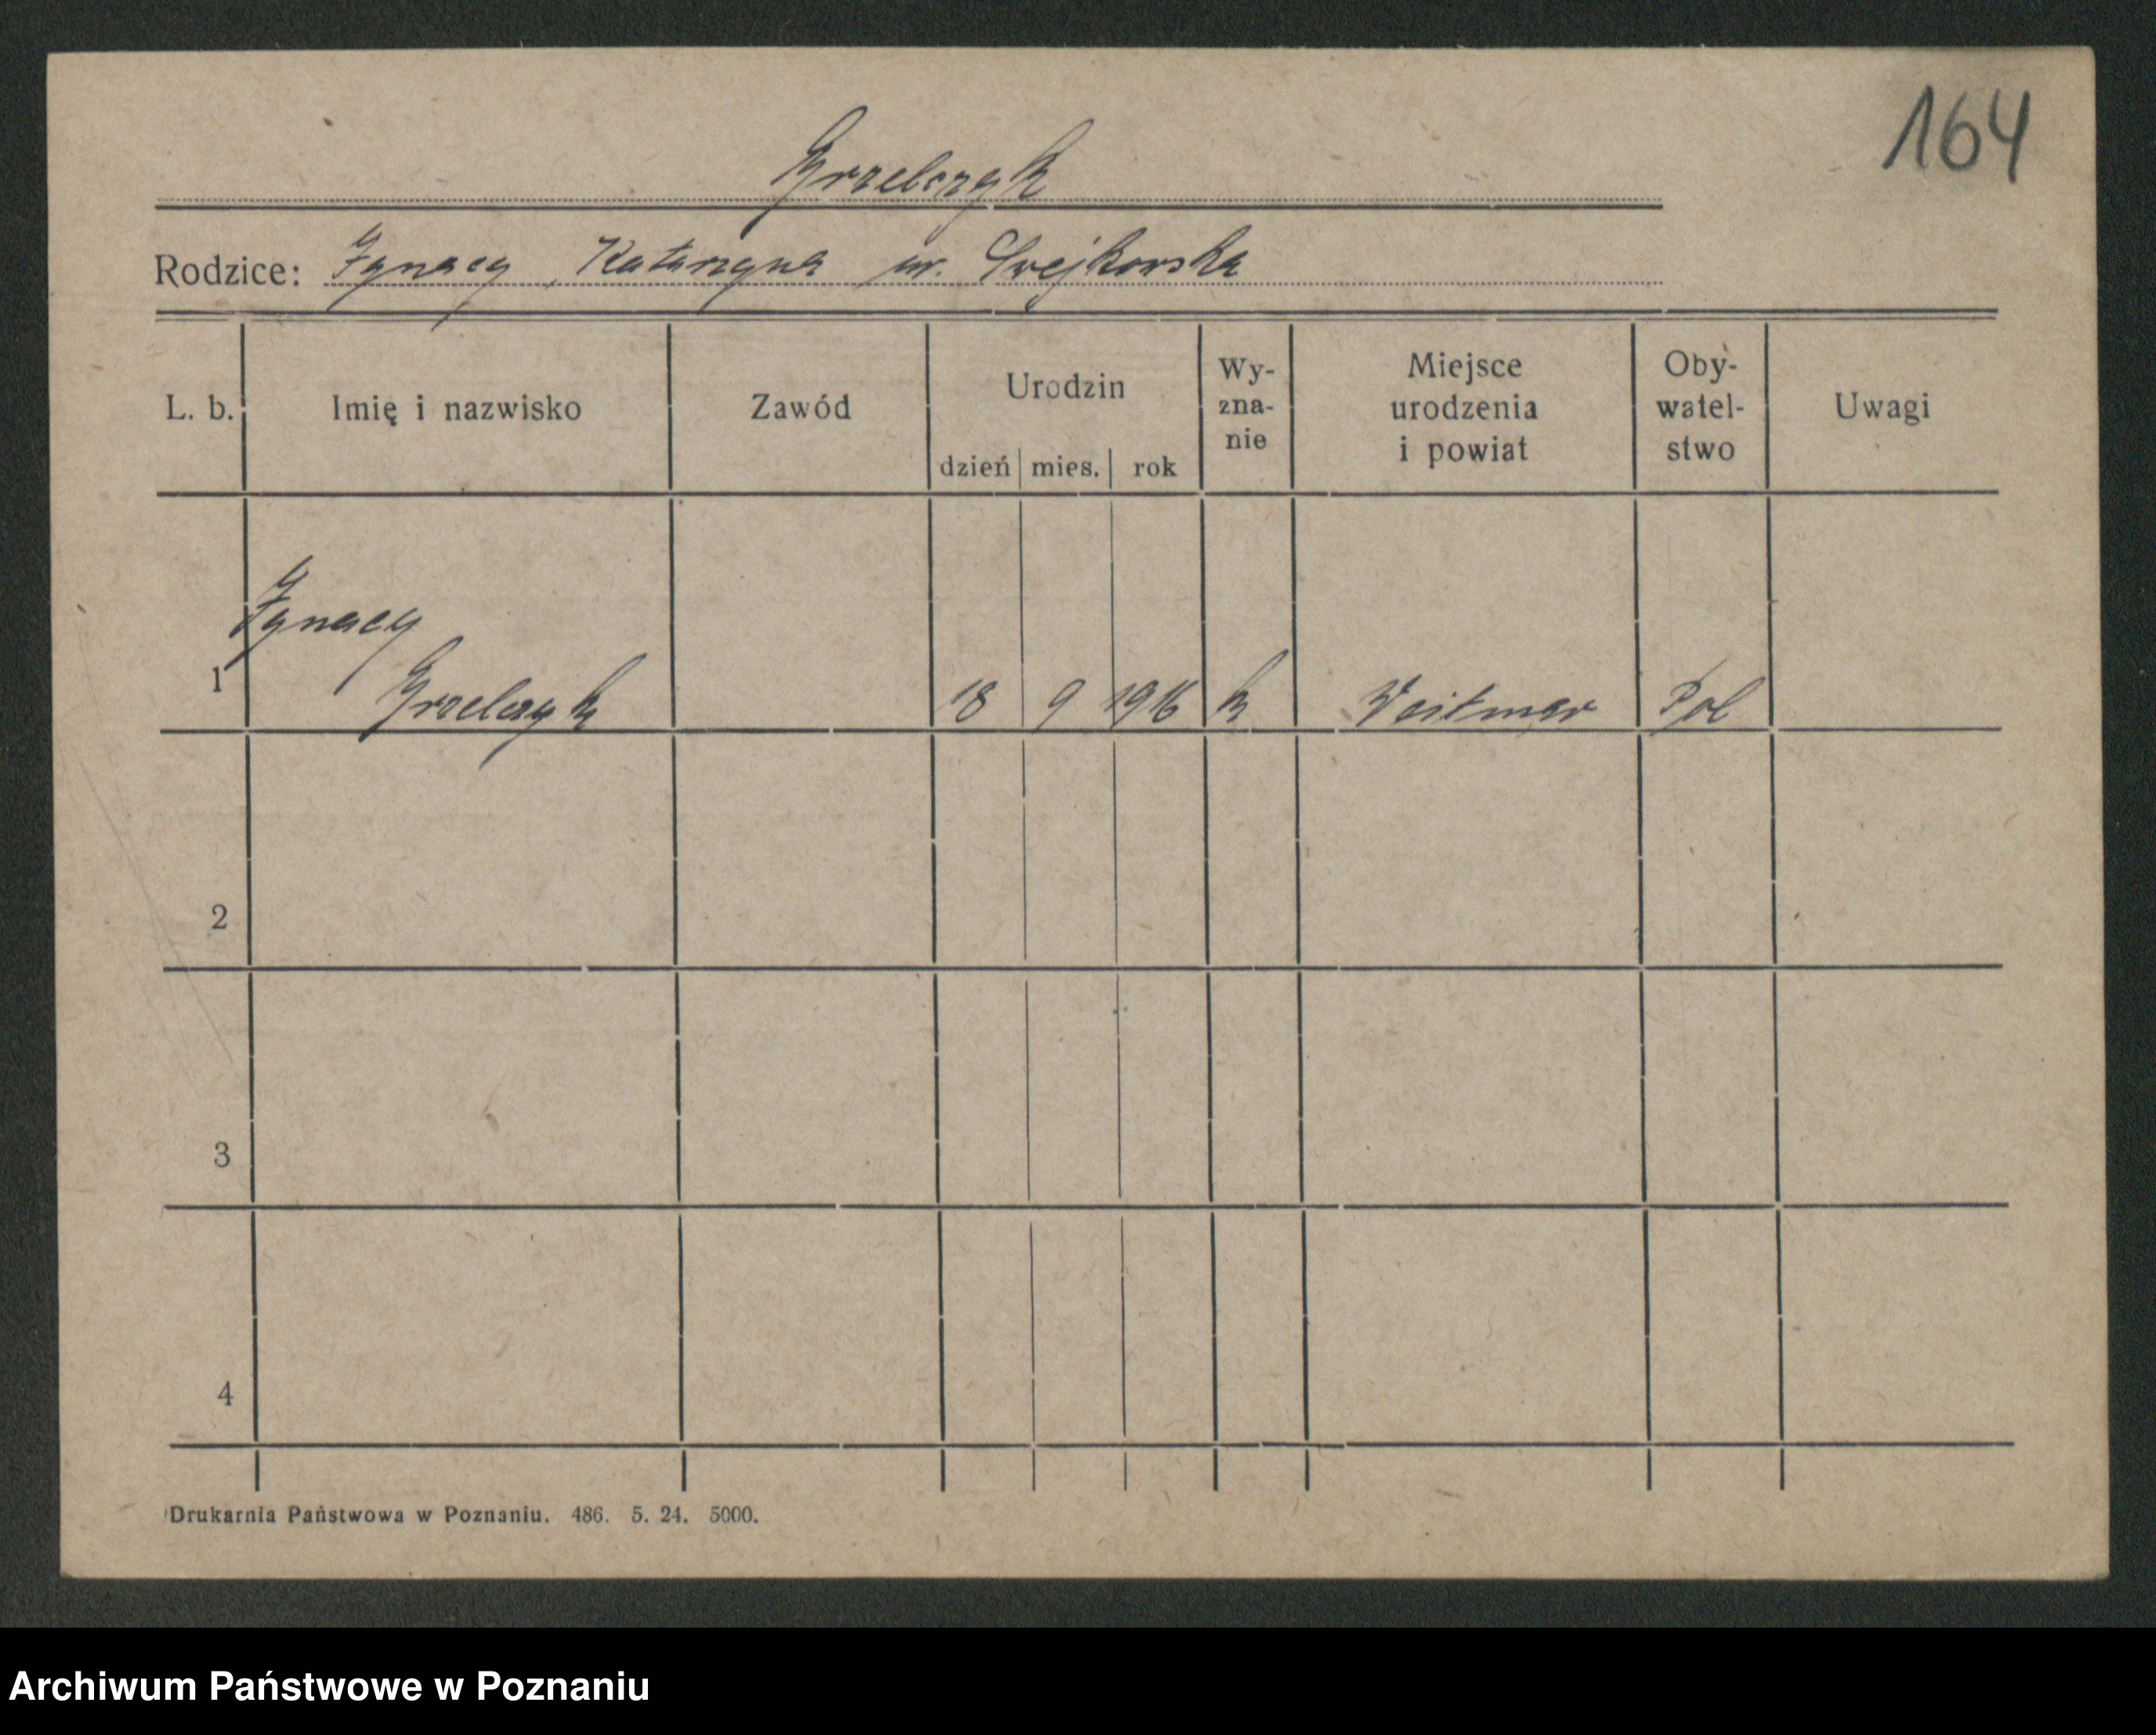 164
Grzelczyk
Rodzice: Ignacy, Katarzyna ur.
L. b. Imię i nazwisko Zawód Urodzin dzień mies. rok Wy-zna-nie Miejsce urodzenia i powiat Oby-watel-stwo Uwagi
Ignacy
1 Grzelczyk 18 9 1916 k Weitmar Pol
2
3
4
Drukarnia Państwowa w Poznaniu. 486. 5. 24. 5000.
Archiwum Państwowe w Poznaniu